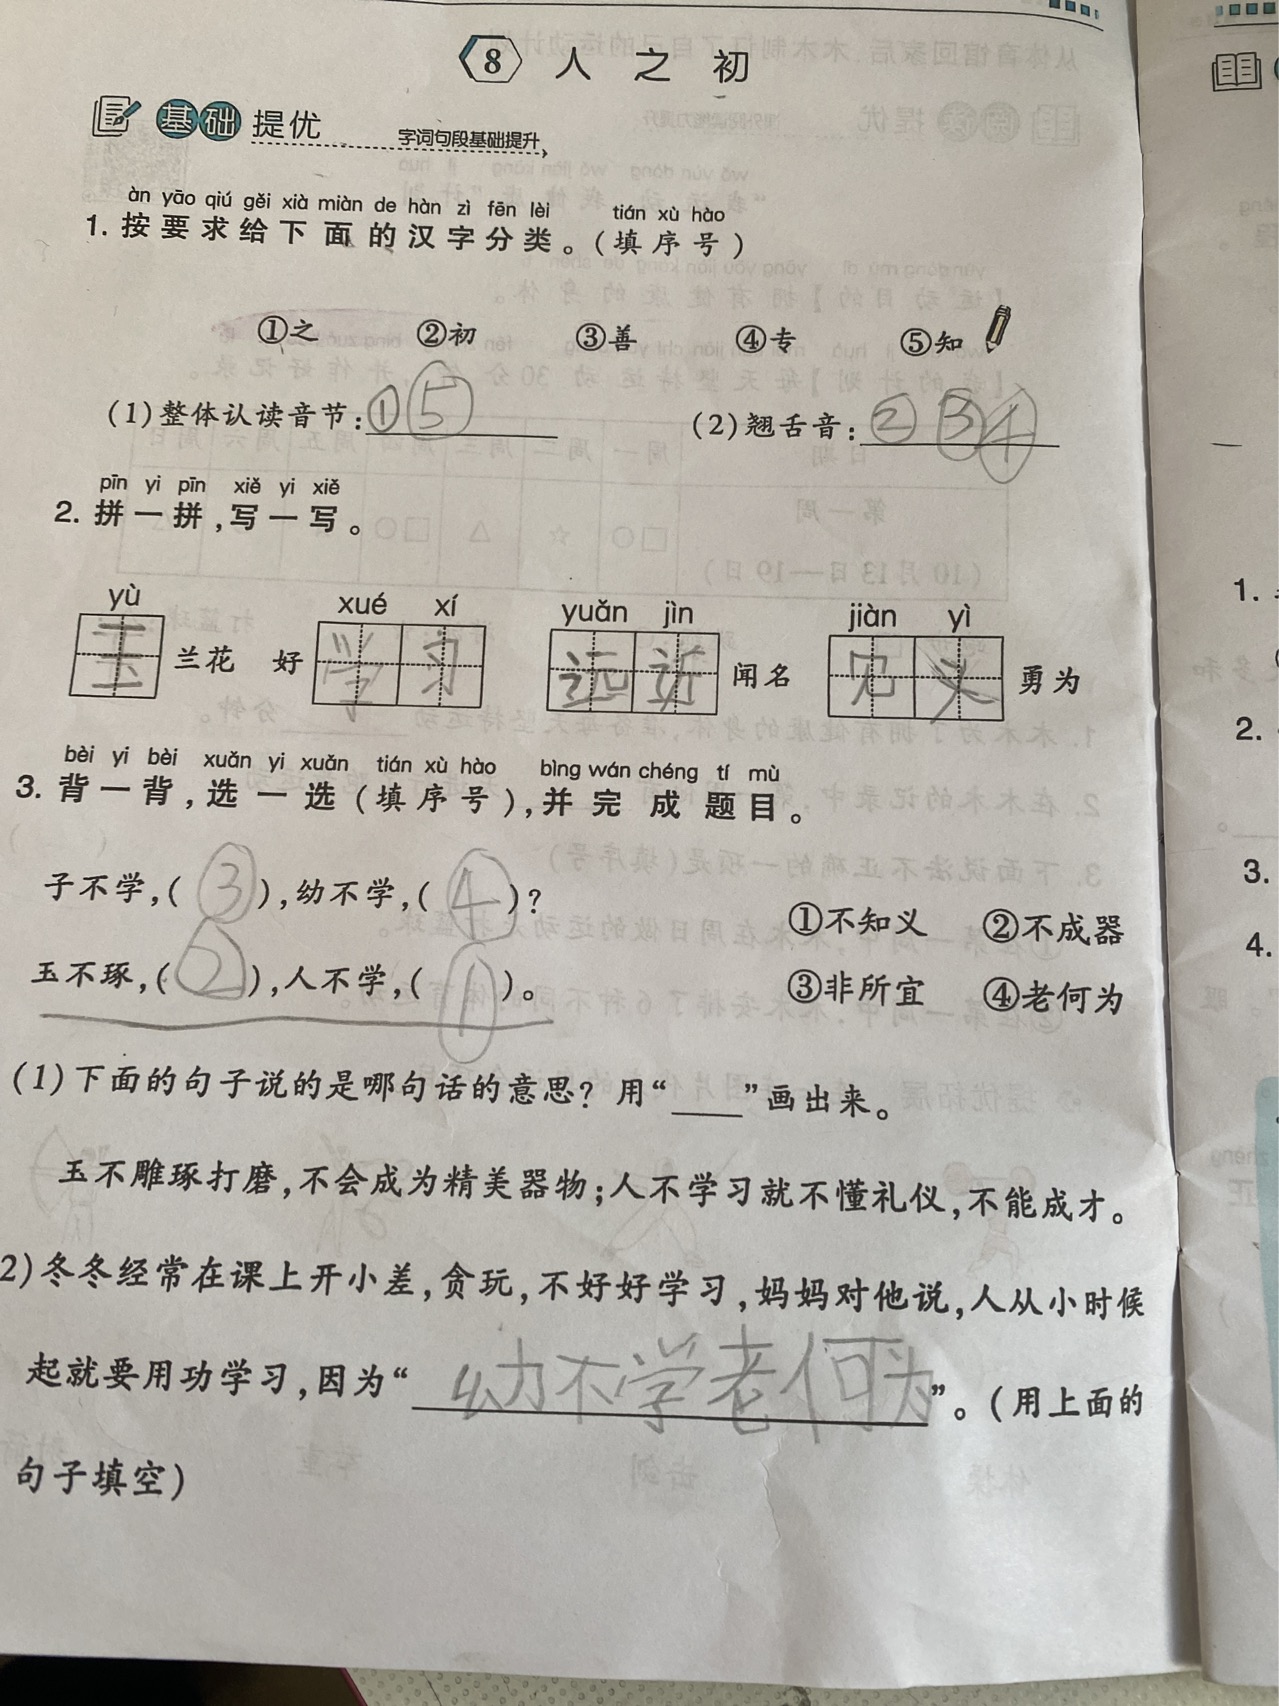 8 人之初
基础提优 字词句段基础提升
àn yāo qiú gěi xià miàn de hàn zì fēn lèi tián xù hào
1. 按要求给下面的汉字分类。(填序号)
①之 ②初 ③善 ④专 ⑤知
(1)整体认读音节:①⑤ (2)翘舌音:②③④
pīn yi pīn xiě yi xiě
2. 拼一拼,写一写。
yù xué xí yuǎn jìn jiàn yì
玉兰花 好学习 远近闻名 见义勇为
bèi yi bèi xuǎn yi xuǎn tián xù hào bìng wán chéng tí mù
3. 背一背,选一选(填序号),并完成题目。
子不学,(③),幼不学,(④)?
玉不琢,(②),人不学,(①)。
①不知义 ②不成器
③非所宜 ④老何为
(1)下面的句子说的是哪句话的意思?用“____”画出来。
玉不雕琢打磨,不会成为精美器物;人不学习就不懂礼仪,不能成才。
2)冬冬经常在课上开小差,贪玩,不好好学习,妈妈对他说,人从小时候
起就要用功学习,因为“幼不学老何为”。(用上面的
句子填空)
1.
2.
3.
4.